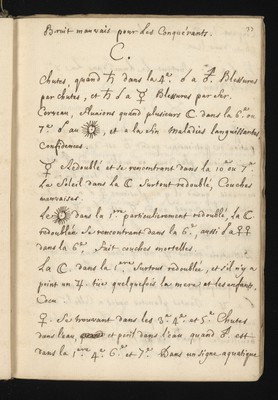 33
Bruit mauvais pour les Conquérants.
C.
Chutes, quand ♄ dans la 4e. ☍ a ♂. Blessures
par chutes, et ♄ ☍ a ☿ Blessures par fer.
Cerveau, fluxions quand plusieurs ☾ dans la 6e. ou
7e ☍ au ☉, et a la fin Maladies languissantes
Confidences.
☿ Redoublé et se rencontrant dans la 10e. ou 7e.
Le Soleil dans la ☾ Surtout redoublé, Couches
mauvaises.
Le ☉ dans la 1ere particulierement redoublé, la ☾
redoublée se rencontrant dans la 6e, aussi la ♀♀
dans la 6e fait couches mortelles
La ☾. dans la 1ere. Surtout redoublée, et s'il n'y a
point un ♃. tüe quelquefois la mere et les enfants.
♀. Se trouvant dans les 3e. 4e. et 5e. Chutes
dans l'eau et peril dans l'eau quand ♂. est
dans la 1ere 4e 6e. et 7e. Dans un signe aquatique